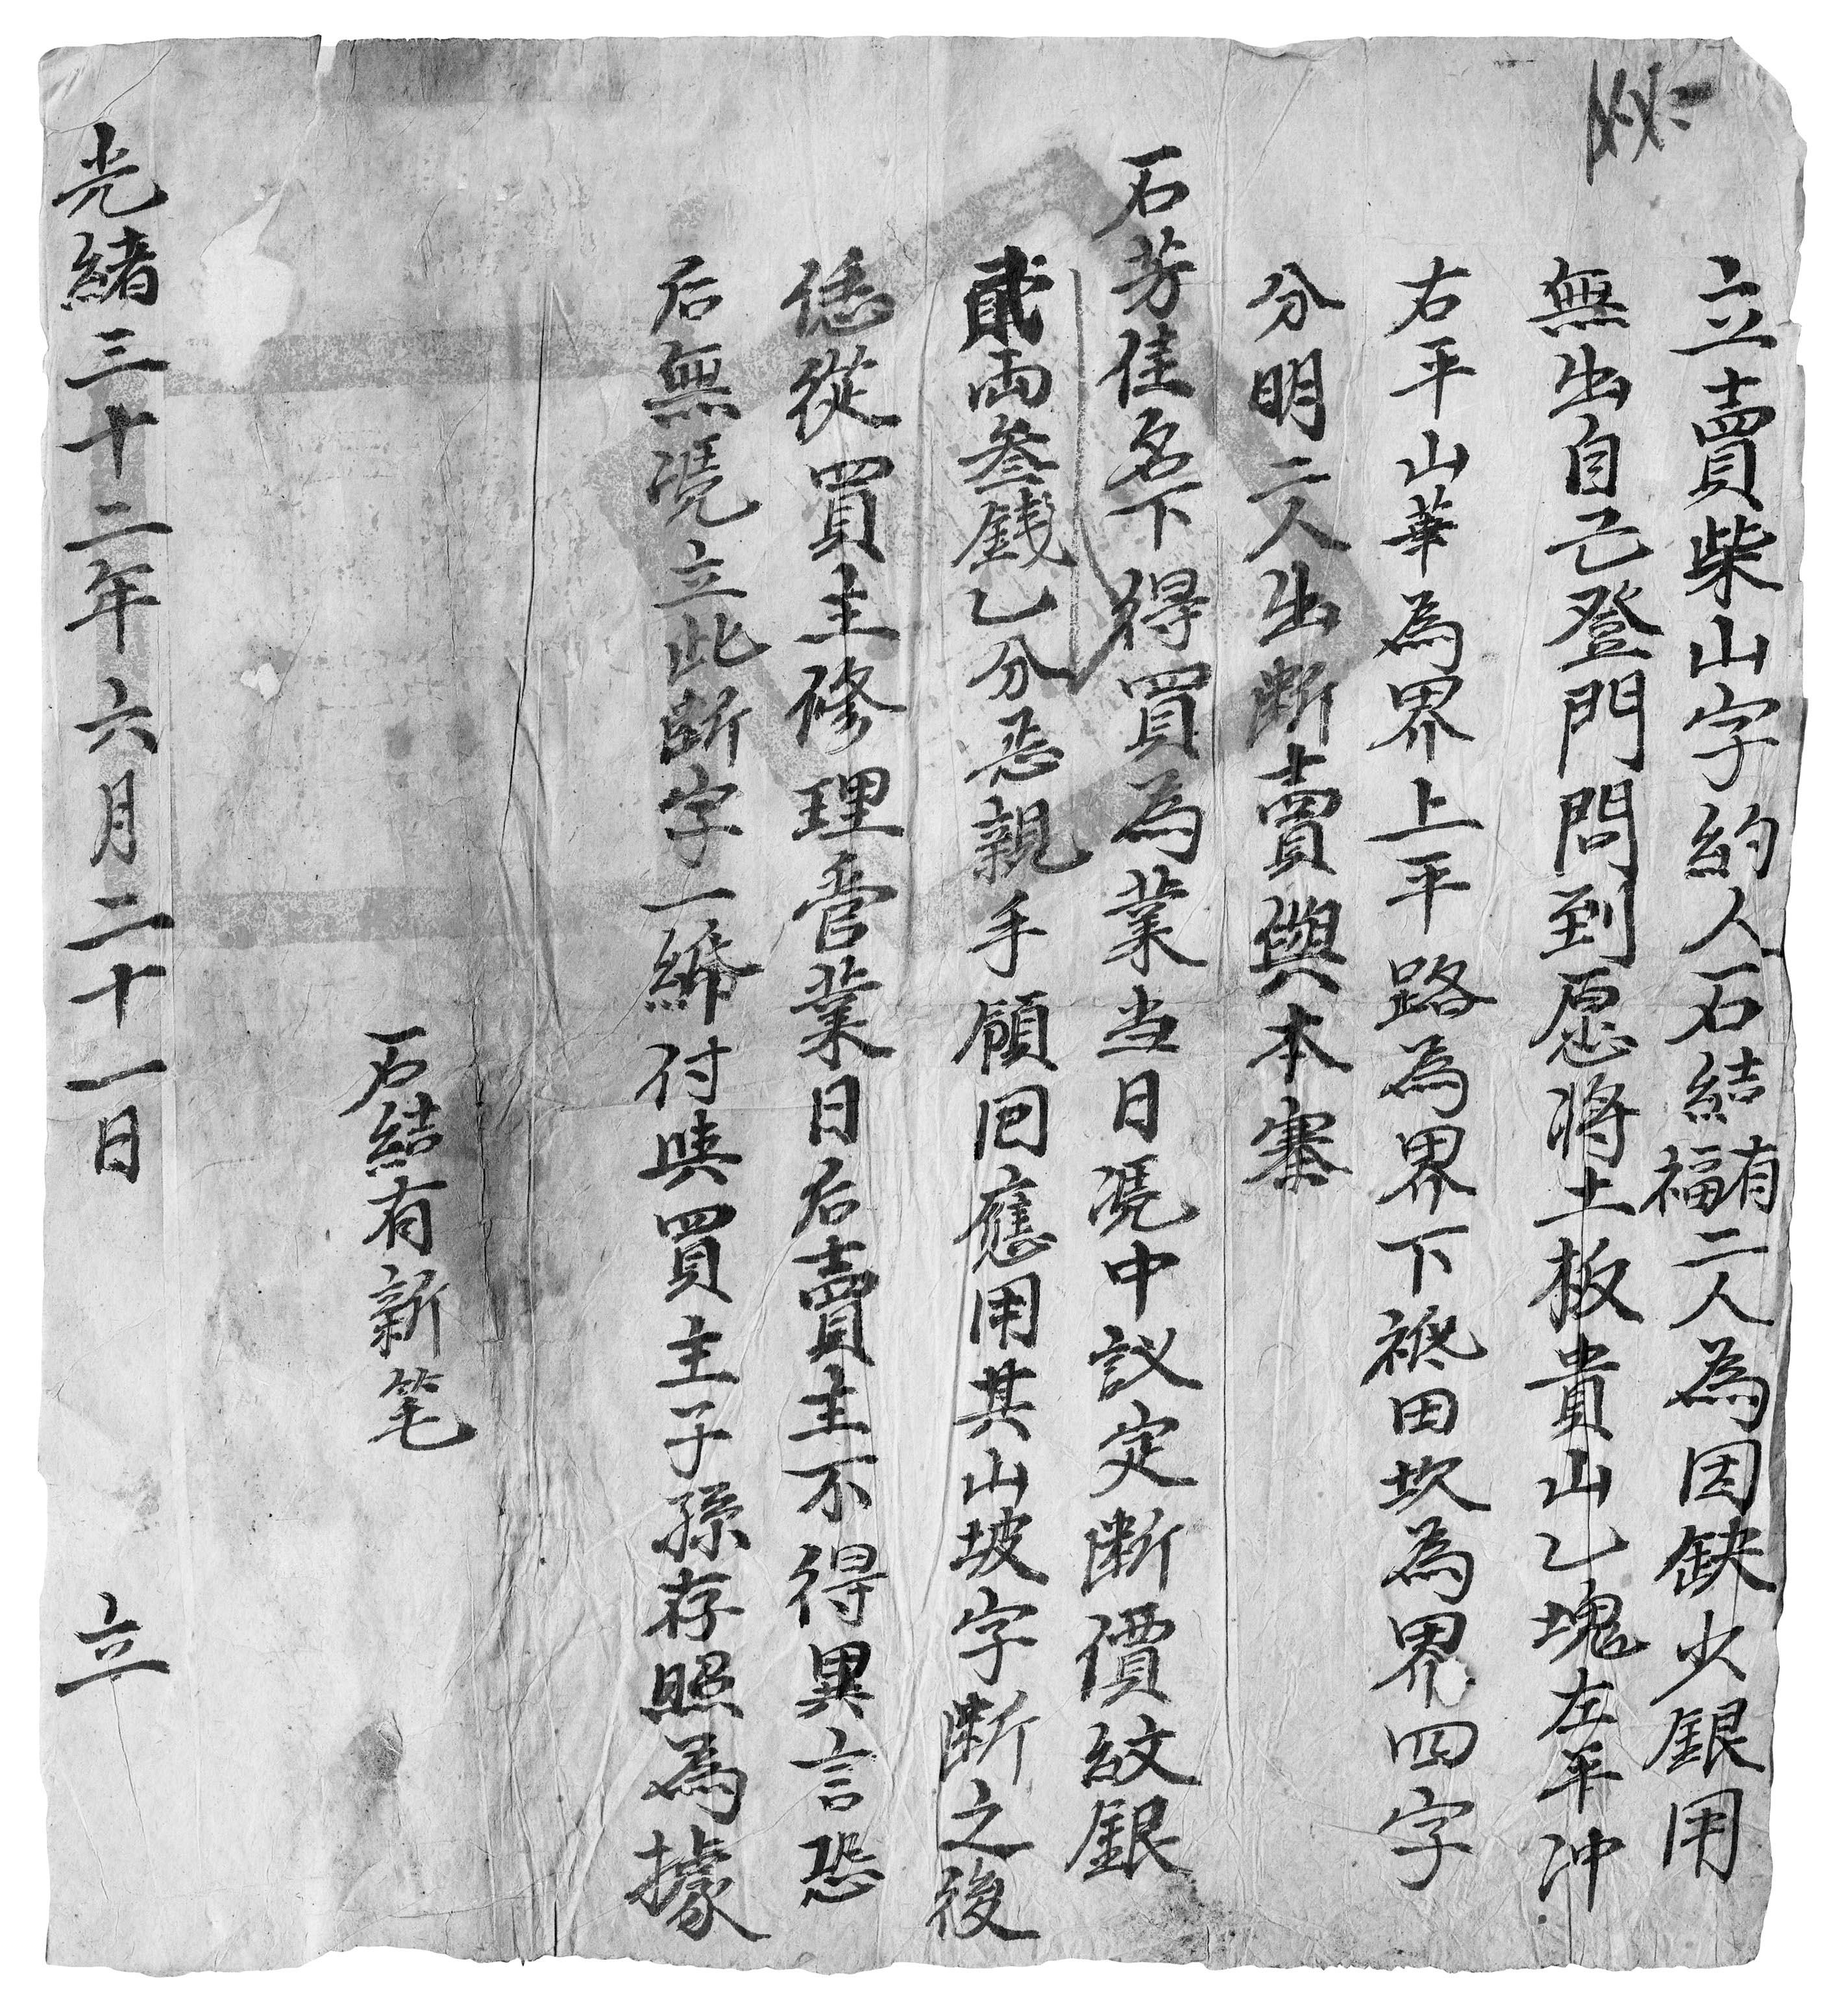 立賣柴山字約人石結有福二人為因缺少銀用
無出自己登門問到愿將土板貴山乙塊左平冲
右平山華為界上平路為界下袛田坎為界四字
分明二人出断賣與本寨
石芳佳名下得買為業当日凭中議定断價紋銀
貳両叄錢乙分忝親手領回應用其山坡字断之後
恁從買主修理管業日后賣主不得異言恐
后無凭立此断字一紙付與買主子孫存照為據
石結有新笔
光緒三十二年六月二十一日 立